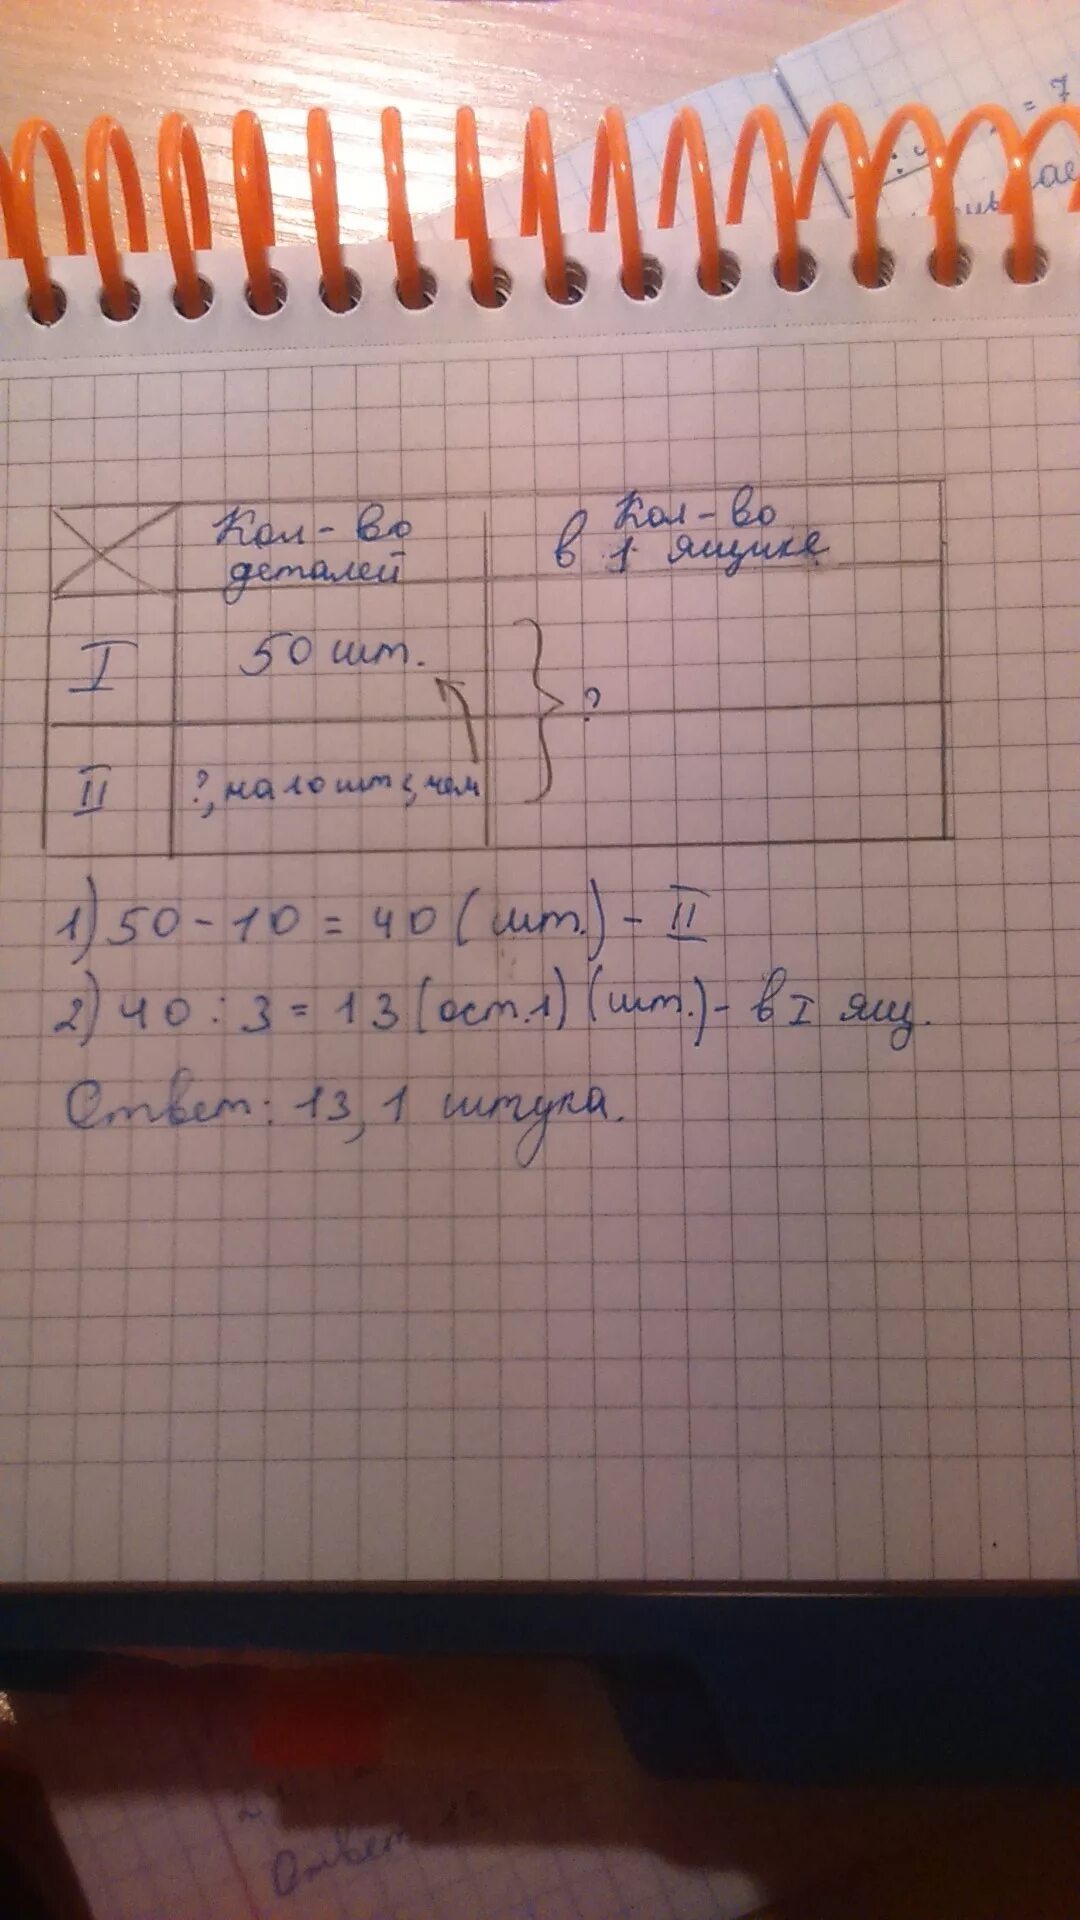 = 7
Кол-во
деталей
Кол-во
в 1 ящике
I
50 шт.
?
II
?, на 10 шт <, чем
1) 50 - 10 = 40 (шт.) - II
2) 40 : 3 = 13 (ост. 1) (шт.) - в I ящ.
Ответ: 13, 1 штука.
Ответ